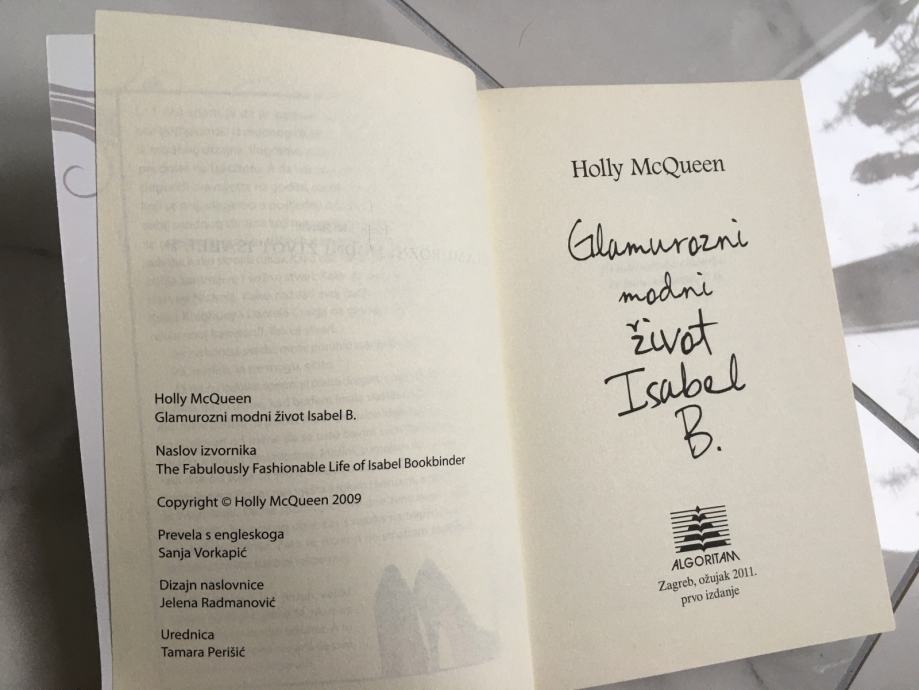 Holly McQueen
Glamurozni modni život Isabel B.
Naslov izvornika
The Fabulously Fashionable Life of Isabel Bookbinder
Copyright © Holly McQueen 2009
Prevela s engleskoga
Sanja Vorkapić
Dizajn naslovnice
Jelena Radmanović
Urednica
Tamara Perišić
Holly McQueen
Glamurozni
modni
život
Isabel
B.
ALGORITAM
Zagreb, ožujak 2011.
prvo izdanje